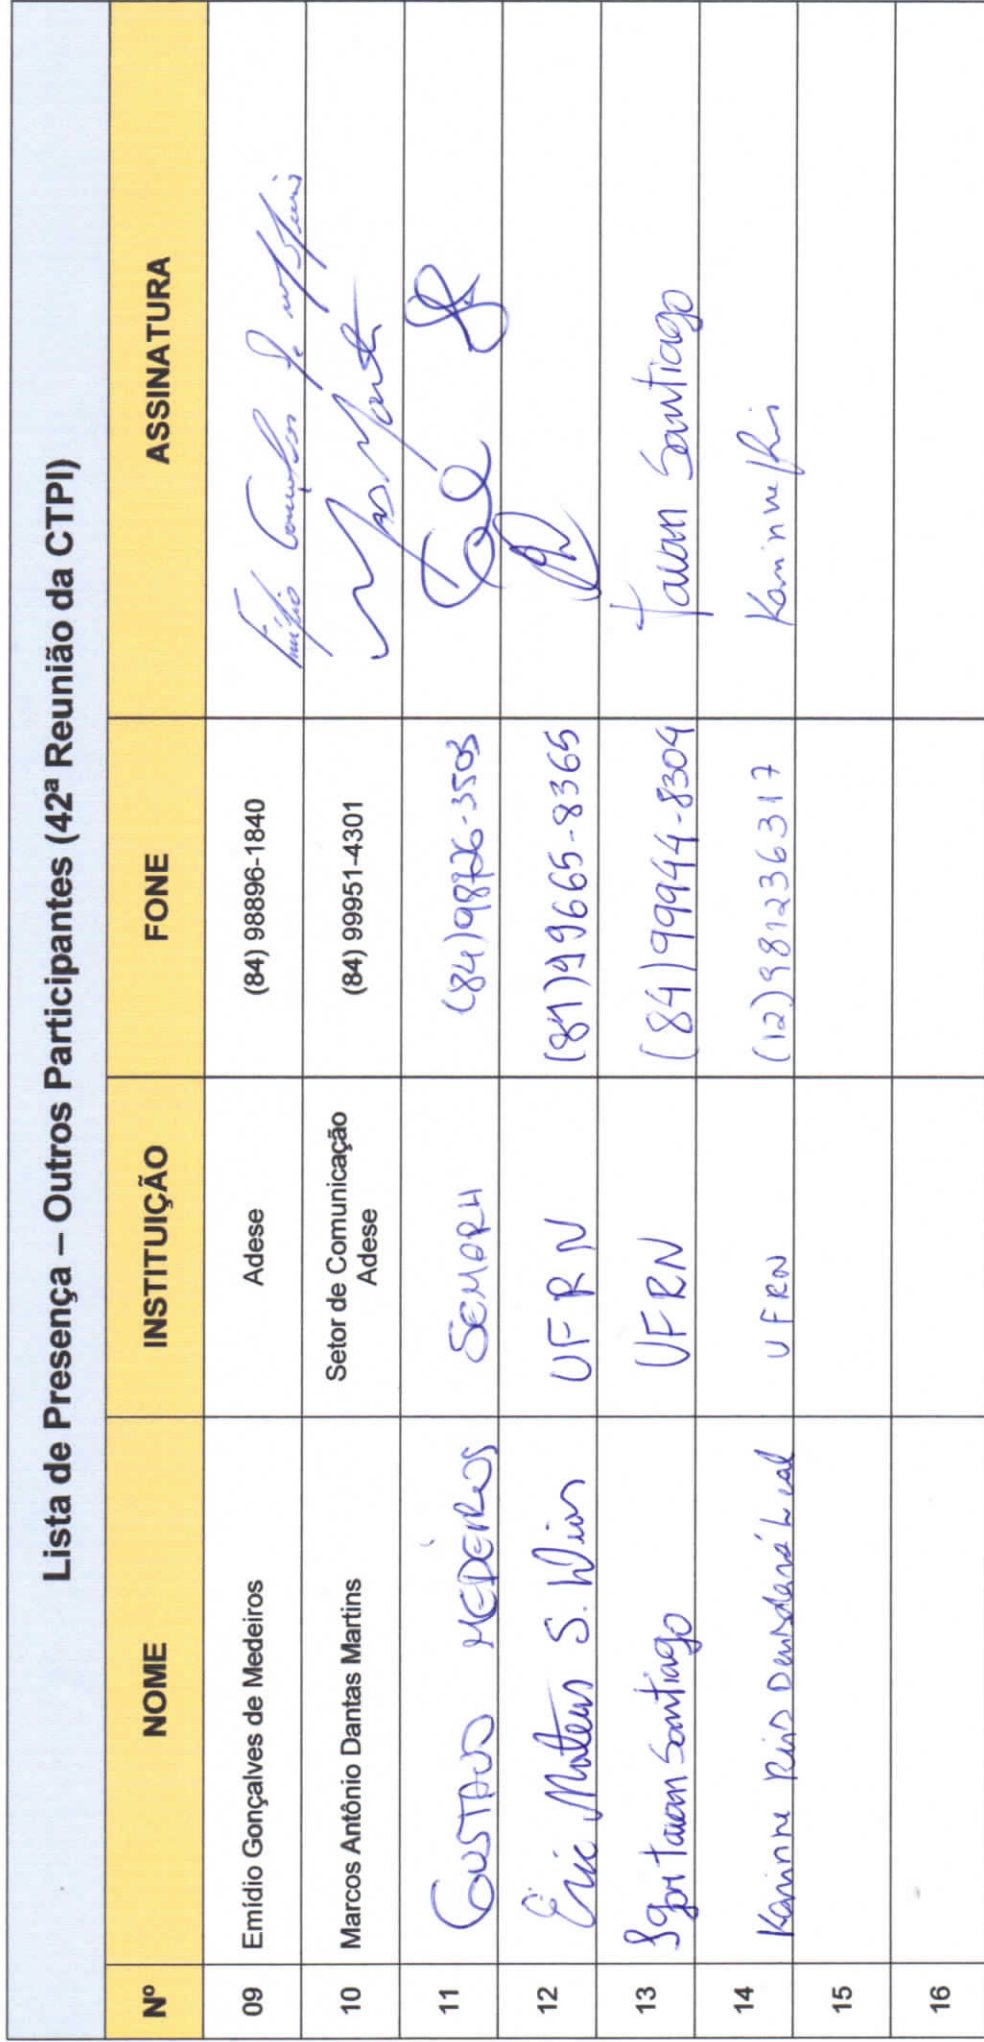 Lista de Presença – Outros Participantes (42ª Reunião da CTPI)
Nº NOME INSTITUIÇÃO FONE ASSINATURA
09 Emídio Gonçalves de Medeiros Adese (84) 98896-1840 Emídio Gonçalves de
10 Marcos Antônio Dantas Martins Setor de Comunicação (84) 99951-4301
Adese
11 GUSTAVO MEDEIROS SEMARH (84)98726-3503
12 Eric Mateus S. UFRN (84)99665-8365
13 Igor Tauan Santiago UFRN (84)99944-8304 Tauan Santiago
14 Karinne Reis Deusdará Leal UFRN (12)981236317 Karinne Reis
15
16